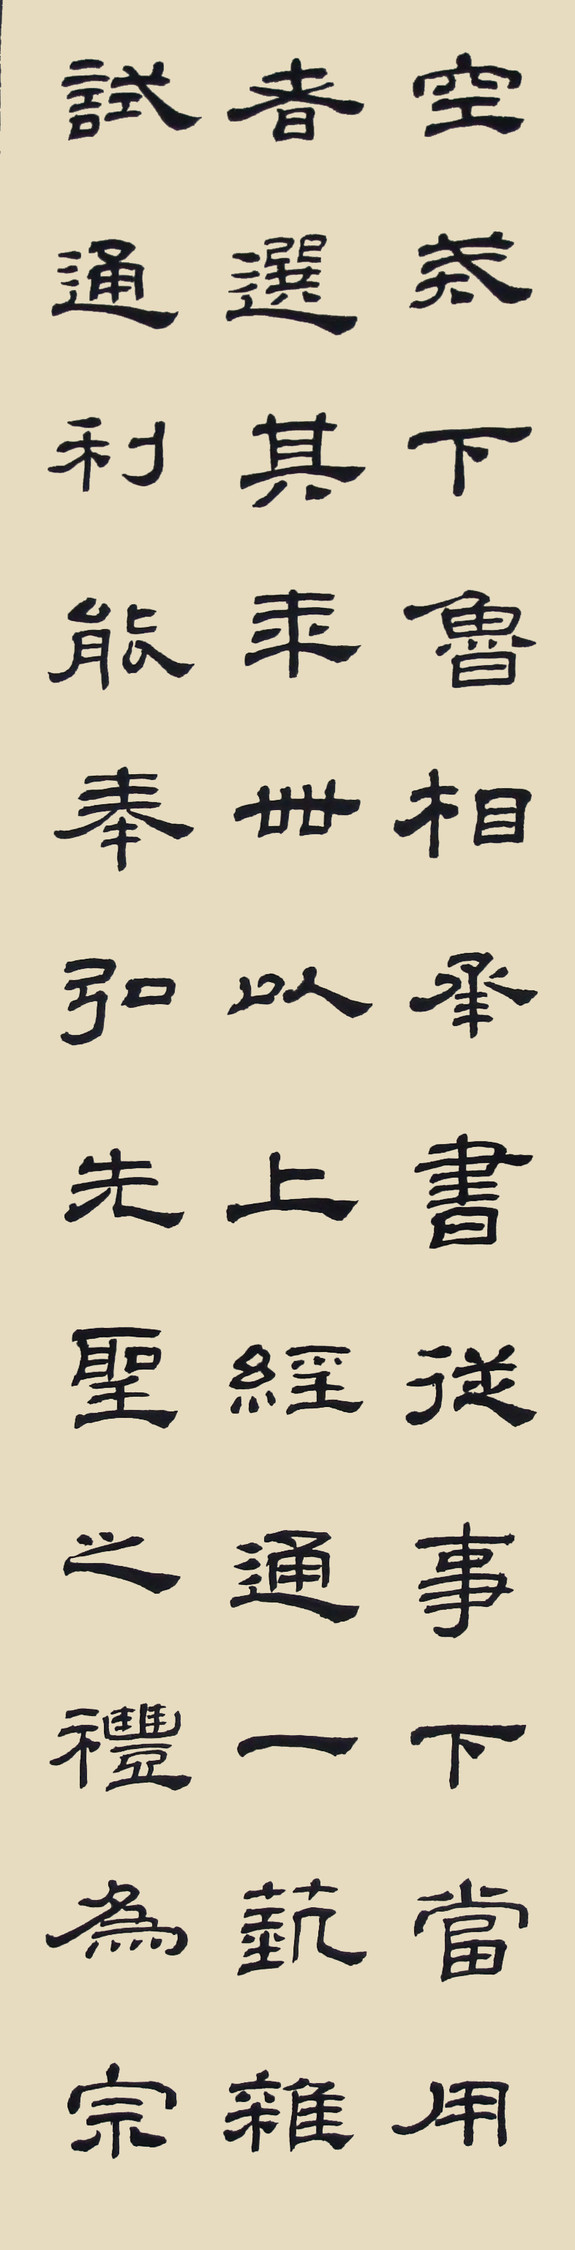 空戒下魯相承書從事下當用
者選其年卌以上經通一藝雜
試通利能奉弘先聖之禮為宗